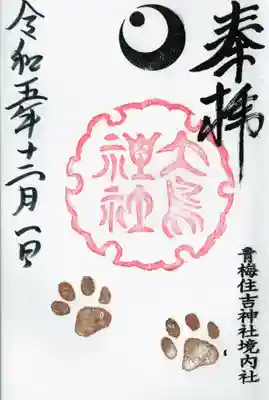 奉拝
大鳥
神社
青梅住吉神社境内社
令和五年十二月一日